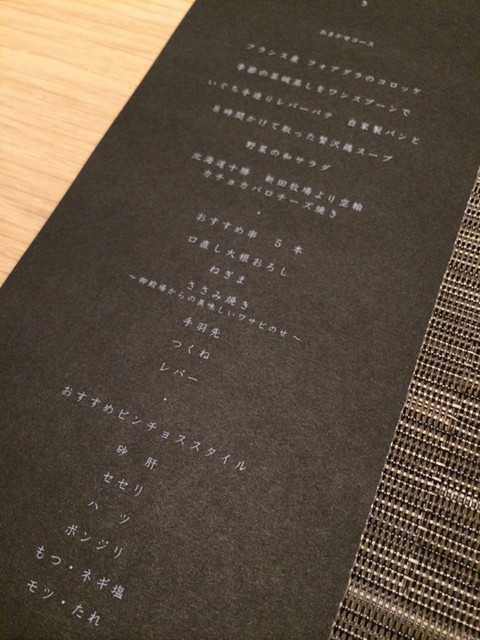 き
おまかせコース
フランス産 フォアグラのコロッケ
季節の茶碗蒸しをワンスプーンで
いぐち手造りレバーパテ 自家製パンと
8時間かけて取った贅沢鶏スープ
野菜の和サラダ
北海道十勝 新田牧場より空輸
カチョカバロチーズ焼き
・
おすすめ串 5本
口直し大根おろし
ねぎま
ささみ焼き
〜御殿場からの美味しいワサビのせ〜
手羽先
つくね
レバー
・
おすすめピンチョススタイル
砂肝
セセリ
ハツ
ボンジリ
もつ・ネギ塩
モツ・たれ